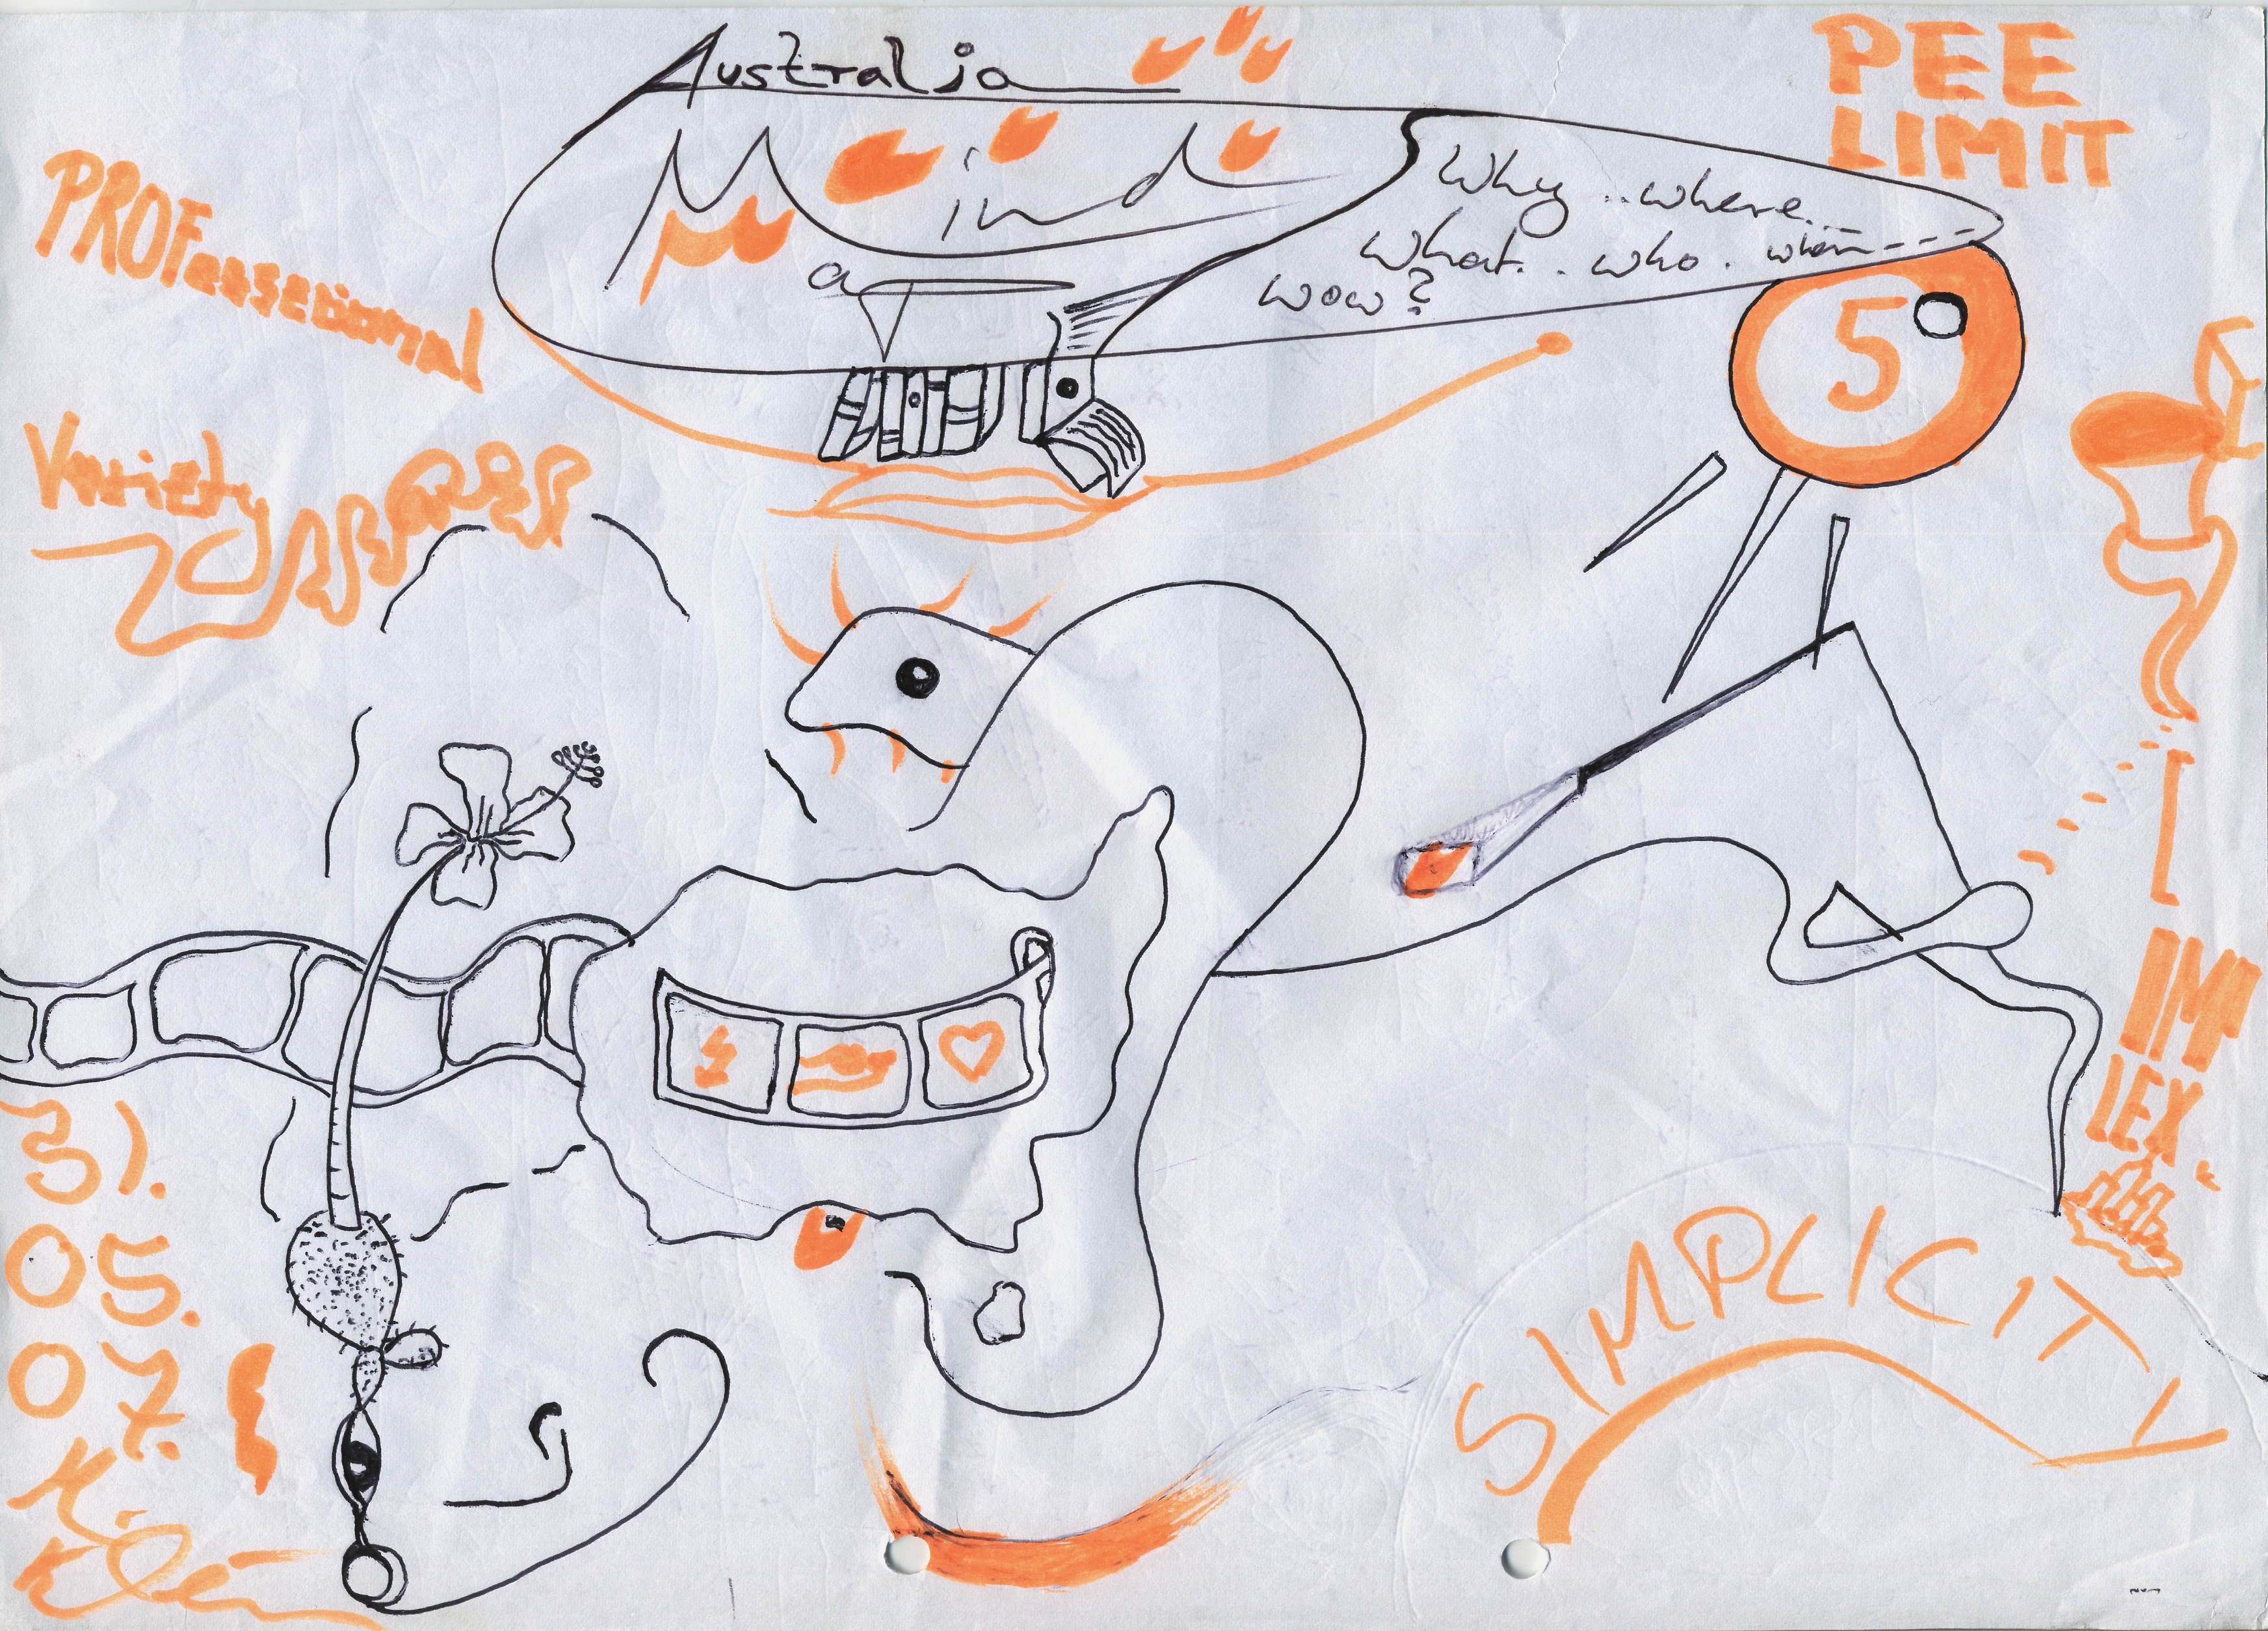 Australia
PEE
LIMIT
Mind
Why .. where...
what.. who. when---
wow?
a
PROFessesional
5
Variety
IMP
LEX.
31.
05.
07.
K.
SIMPLICITY